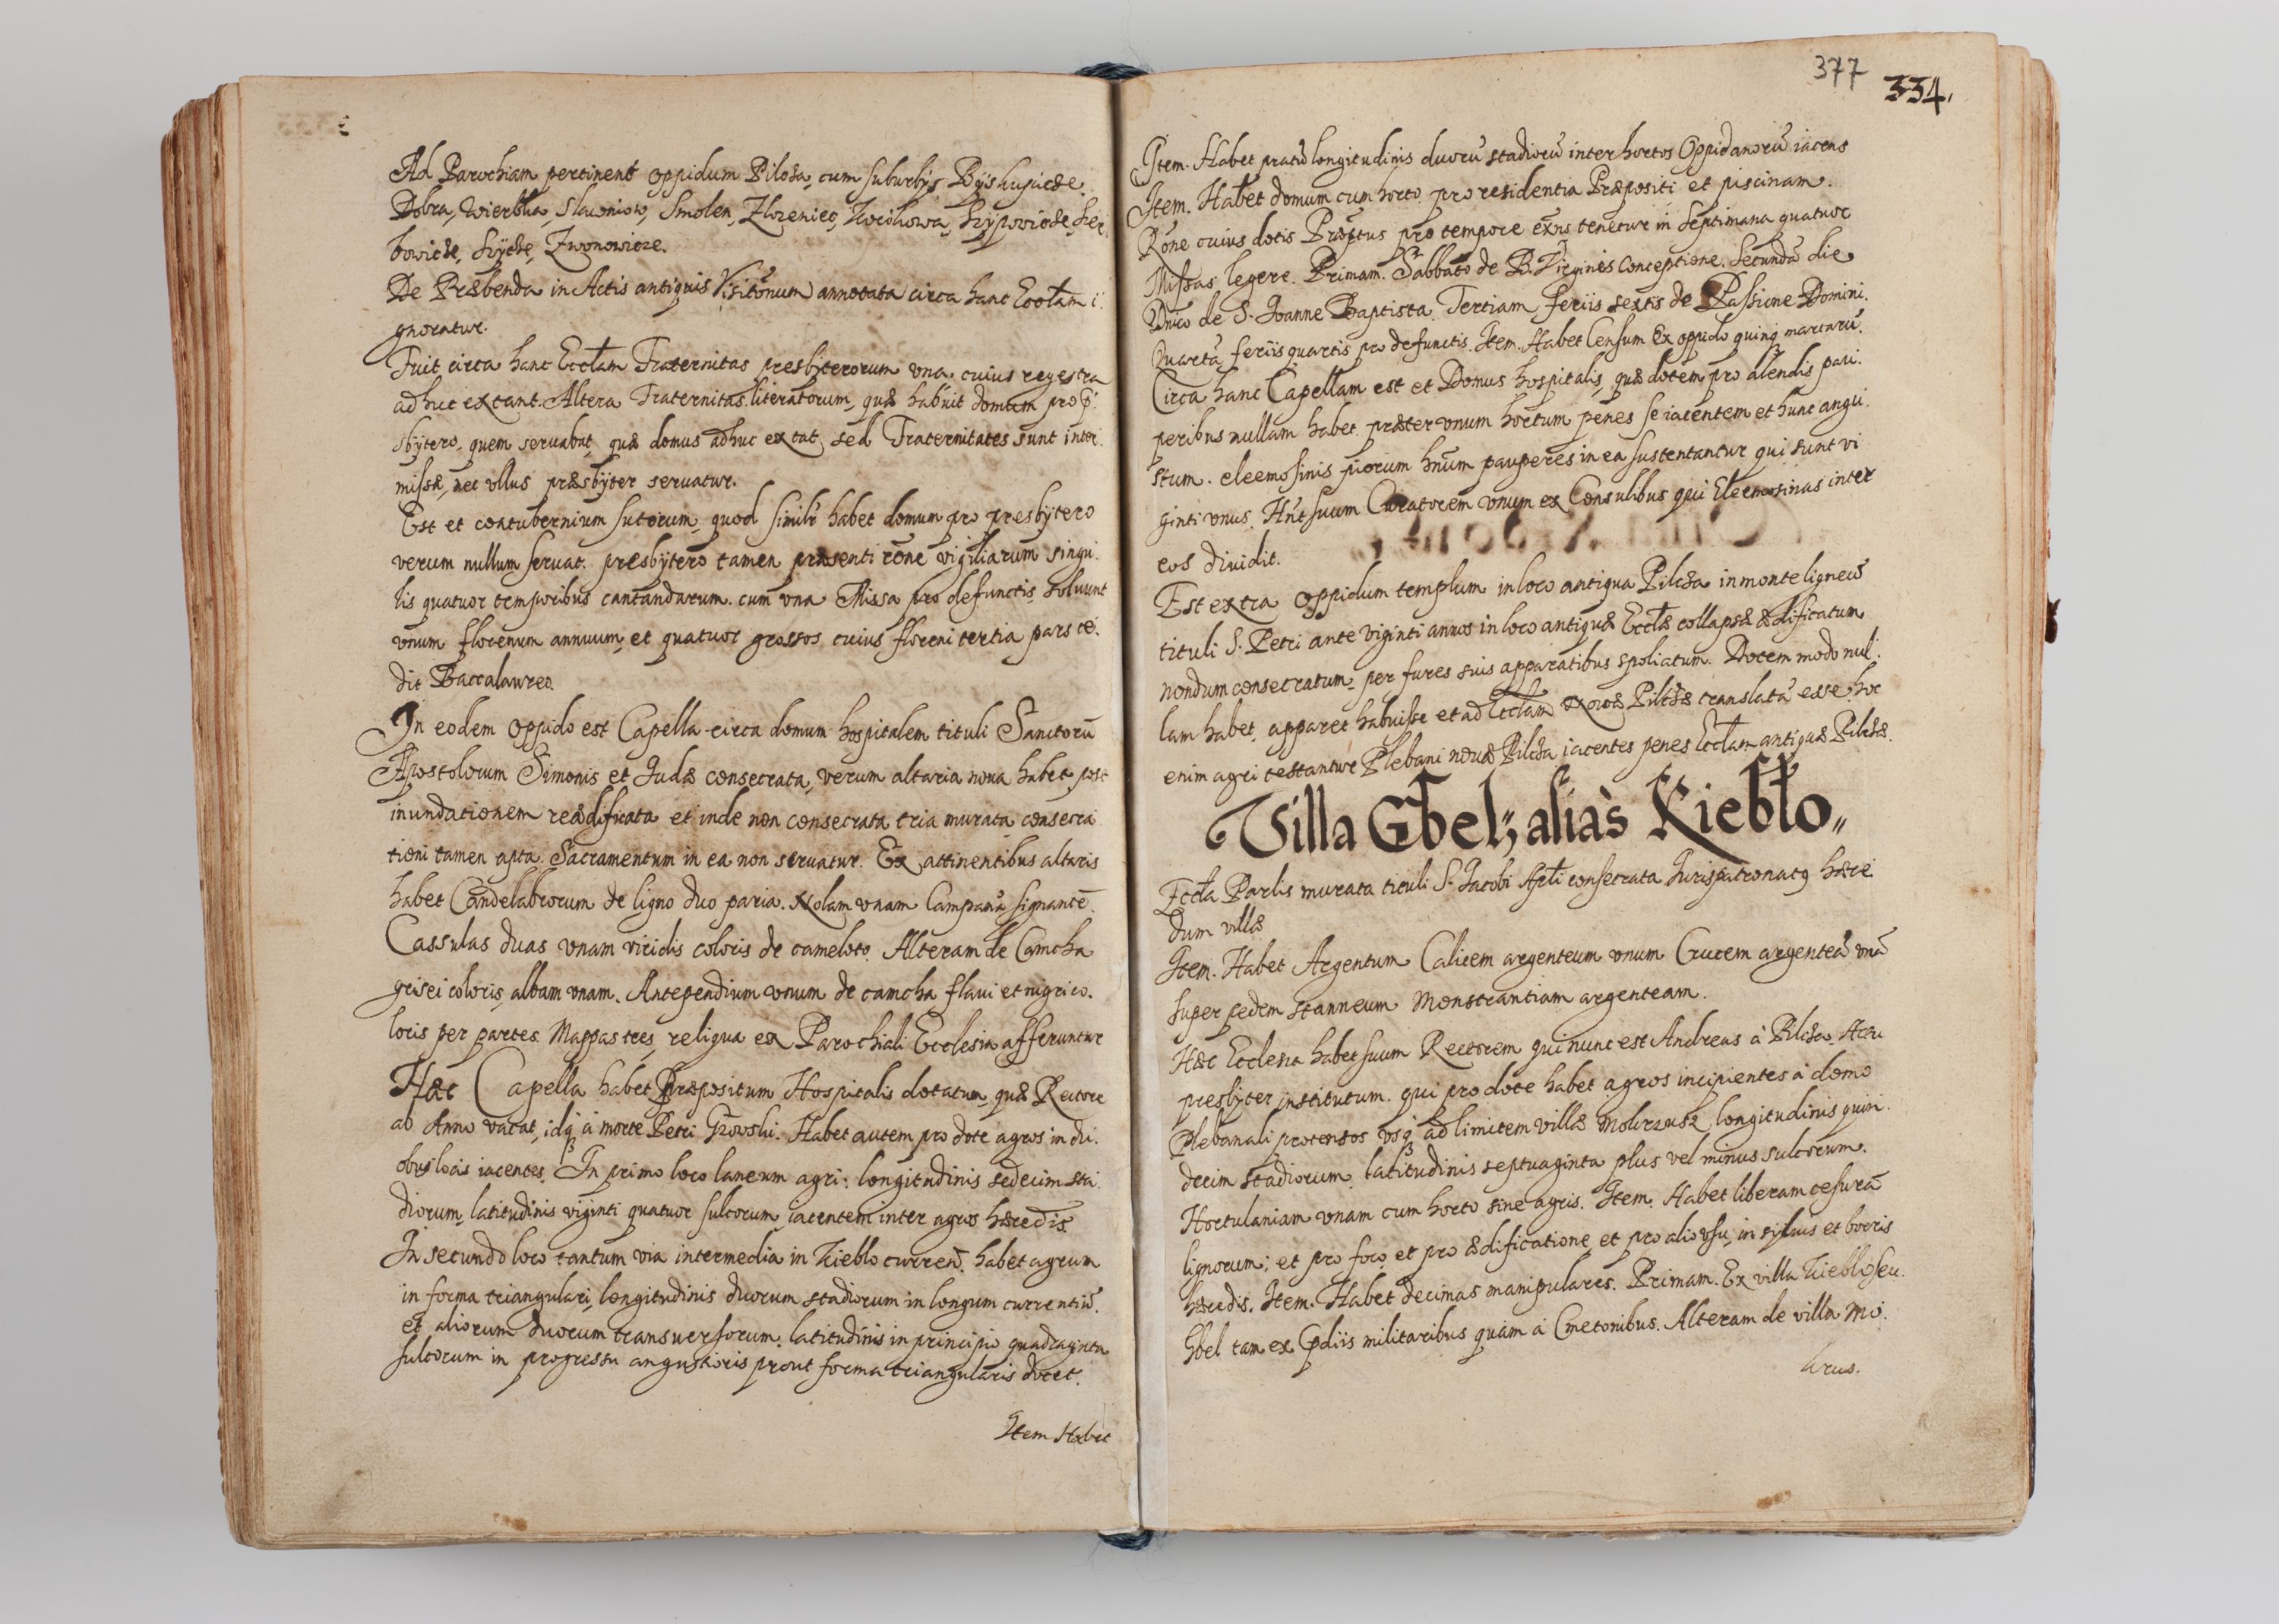 Ad Parochiam pertinent oppidum Pilcza, cum suburbijs Byskupicze
Dobra, Wierbka, Slawniow, Smolen, Zlozeniec, Kocikowa, Krzywopłoty, Ser
bowicze, Zwonowicze.
De Præbenda in Actis antiquis Visitõnum annotata circa hanc Eccłam i:
gnoratur.
Fuit circa hanc Eccłam Fraternitas presbÿterorum vna cuius regestra
adhuc extant. Altera Fraternitas literatorum, quæ habuit domum pro p̃:
sbÿtero, quem seruabat, quæ domus adhuc extat, sed Fraternitates sunt inter:
missæ, nec vllus præsbÿter seruatur.
Est et contubernium sutorum, quod similir habet domum pro presbÿtero
verum nullum seruat. presbÿtero tamen præsenti rõne vigiliarum singu:
lis quatuor temporibus cantandarum cum vna Missa pro defunctis, soluunt
vnum florenum annuum, et quatuor grossos cuius floreni tertia pars ce:
dit Baccalaureo.
In eodem Oppido est Capella circa domum hospitalem tituli Sanctorũ
Apostolorum Simonis et Judæ consecrata, verum altaria noua habet post
inundationem reædificata et inde non consecrata tria murata consecra
tioni tamen apta. Sacramentum in ea non seruatur. Ex attinentibus altaris
habet Candelabrorum de ligno duo paria. Nolam vnam Campanã signantẽ.
Cassulas duas vnam viridis coloris de cameloto. Alteram de Camcha
grisei coloris, albam vnam. Antependium vnum de camcha flaui et nigri co:
loris per partes. Mappas tres, reliqua ex Parochiali Ecclesia afferuntur
Hæc Capella habet Præpositum Hospitalis dotatum, quæ Rectore
ab Anno vacat, idq̃ à morte Petri Growski. Habet autem pro dote agros in du:
obus locis iacentes. In primo loco laneum agri: longitudinis sedecim sta:
diorum, latitudinis viginti quatuor sulcorum iacentem inter agros hæredis
In secundo loco tantum via intermedia in Kieblo curren̄. habet agrum
in forma triangulari, longitudinis duorum stadiorum in longum currentiũ.
et aliorum duorum transuersorum. latitudinis in principio quadraginta
sulcorum in progressu angustioris prout forma triangularis docet.
Item Habet
377
334.
Item. Habet pratũ longitudinis duorũ stadiorũ inter hortos Oppidanorũ iacens
Item. Habet domum cum horto pro residentia Præpositi et piscinam.
Rõne cuius dotis Præptus pro tempore exñs tenetur in septimana quatuor
Missas legere. Primam. Sabbato de B. Virginis Conceptione. Secundã die
Dnico de S. Joanne Baptista. Tertiam feriis sextis de Passione Domini.
Quartã feriis quartis pro defunctis. Item. Habet Censum Ex oppido quinq̃ marcarũ.
Circa hanc Capellam est et Domus hospitalis, quæ dotem pro alendis pau:
peribus nullam habet præter vnum hortum penes se iacentem et hunc angu:
stum. eleemosinis piorum hñum pauperes in ea sustentantur qui sunt vi
ginti vnus. Hñt suum Curatorem vnum ex Consulibus qui Eleemosinas inter
eos diuidit.
Est extra oppidum templum in loco antiqua Pilcza in monte ligneũ
tituli S. Petri ante viginti annos in loco antiquæ Eccłæ collapsæ ædificatum
nondum consecratum, per fures suis apparatibus spoliatum. Dotem modo nul:
lam habet, apparet habuisse et ad Eccłam Nouæ Pilczæ translatã esse. hoc
enim agri testantur Plebani nouæ Pilcza iacentes penes Eccłam antiquæ Pilczæ.
Villa Gbel, aliàs Kiebło„
Eccła Parlis murata tituli S. Jacobi Apłi consecrata Jurispatronatq̃ hære:
dum villæ
Item. Habet Argentum Calicem argenteum vnum Crucem argenteã vnã
super pedem stanneum Monstrantiam argenteam.
Hæc Ecclesia habet suum Rectorem qui nunc est Andreas à Pilcza. Actu
presbÿter institutum. qui pro dote habet agros incipientes à domo
Plebanali protensos vsq̃ ad limitem villæ longitudinis quin:
decim stadiorum. latitudinis septuaginta plus vel minus sulcorum.
Hortulaniam vnam cum horto sine agris. Item. Habet liberam cesurã
lignorum; et pro foco et pro ædificatione et pro alio vsu, in syluis et boris
hæredis. Item. Habet decimas manipulares. Primam. Ex villa Kieblo seu
Gbel tam ex Prædiis militaribus quàm à Cmetonibus. Alteram de villa Mo:
krus.